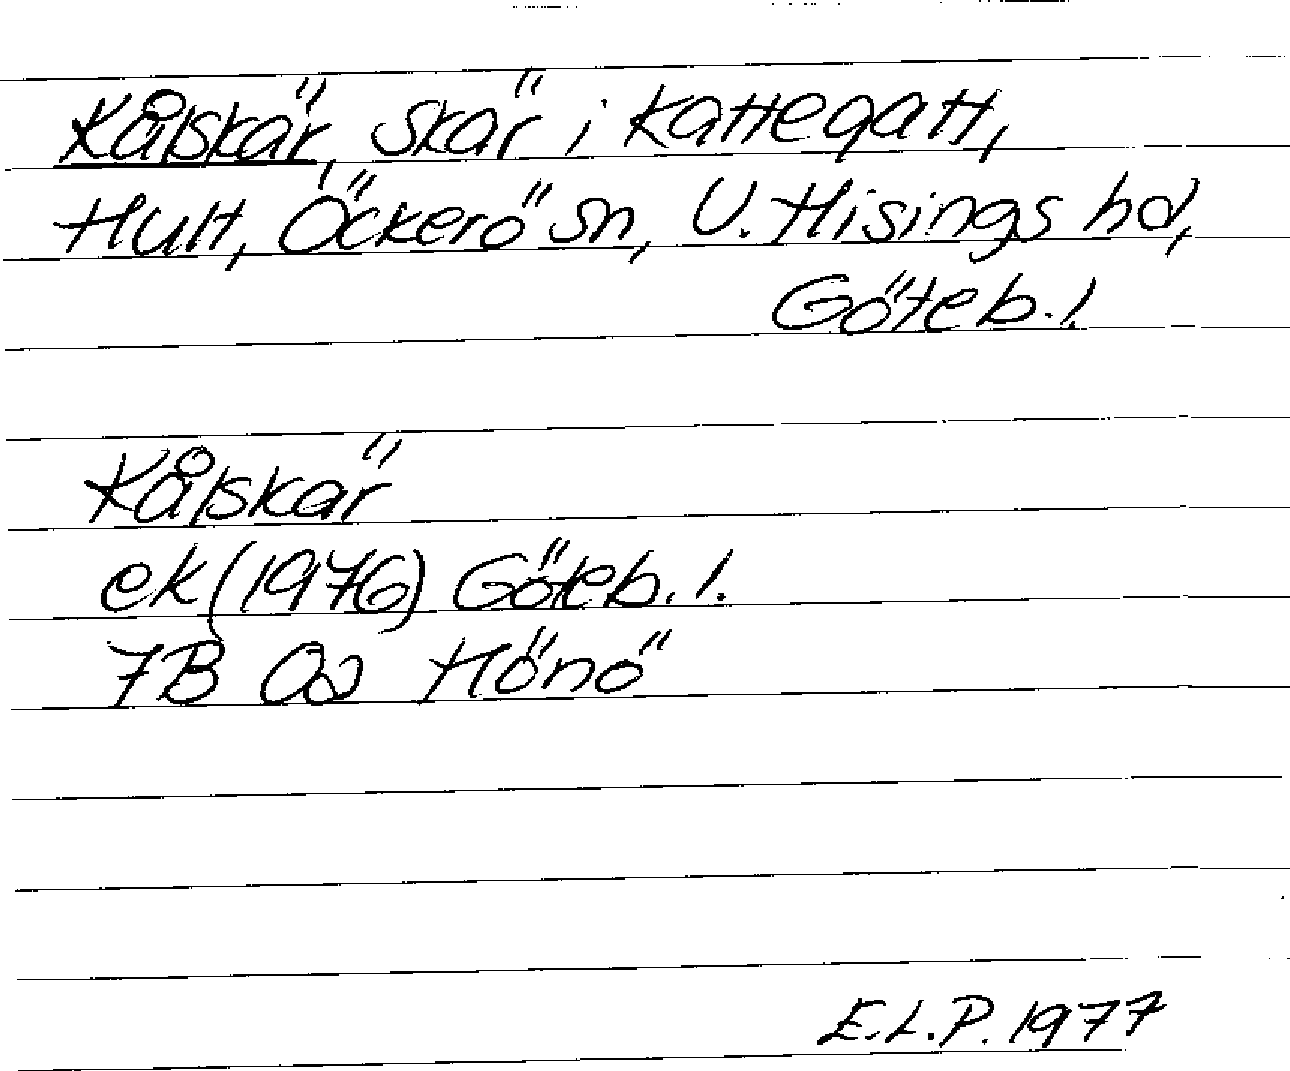 Kålskär, skär i Kattegatt,
Hult, Öckerö sn, V. Hisings hd,
Göteb. l.
Kålskär
ek (1976) Göteb. l.
7B 0a Hönö
E.L.P. 1977